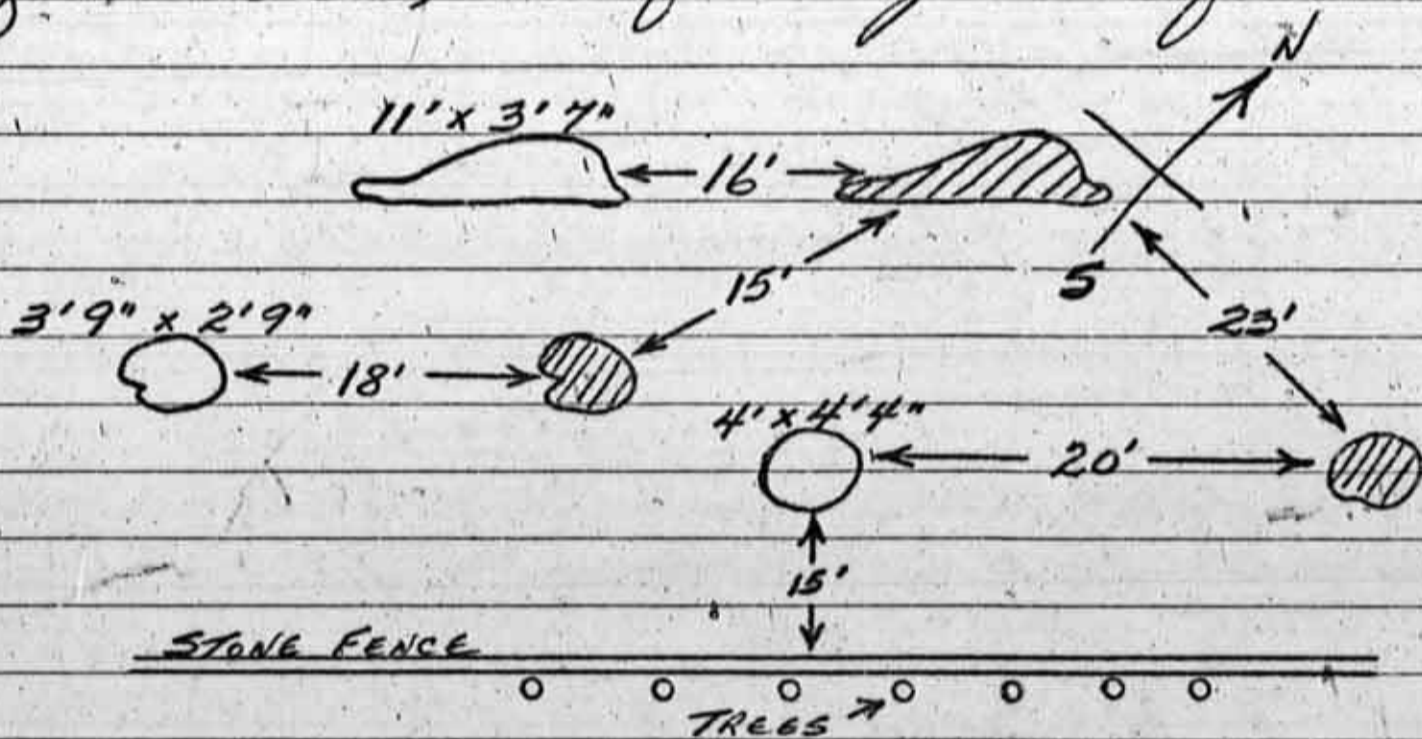 N
11' x 3' 7"
16'
S
15'
23'
3' 9" x 2' 9"
18'
4' x 4' 4"
20'
15'
STONE FENCE
TREES